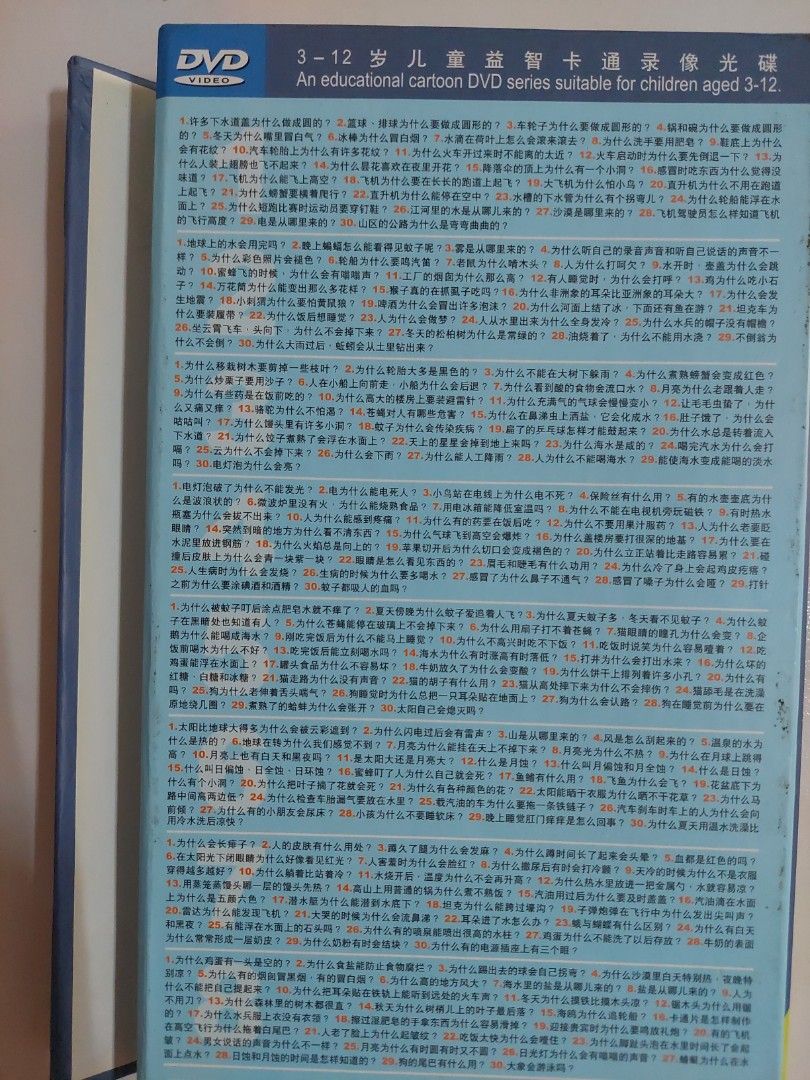 DVD
VIDEO
3-12 岁儿童益智卡通录像光碟
An educational cartoon DVD series suitable for children aged 3-12.
1.许多下水道盖为什么做成圆的？ 2.篮球、排球为什么要做成圆形的？ 3.车轮子为什么要做成圆形的？ 4.锅和碗为什么要做成圆形
的？ 5.冬天为什么嘴里冒白气？ 6.冰棒为什么冒白烟？ 7.水滴在荷叶上怎么会滚来滚去？ 8.为什么洗手要用肥皂？ 9.鞋底上为什么
会有花纹？ 10.汽车轮胎上为什么有许多花纹？ 11.为什么火车开过来时不能离的太近？ 12.火车启动时为什么要先倒退一下？ 13.为
什么人装上翅膀也飞不起来？ 14.为什么昙花喜欢在夜里开花？ 15.降落伞的顶上为什么有一个小洞？ 16.感冒时吃东西为什么觉得没
味道？ 17.飞机为什么能飞上高空？ 18.飞机为什么要在长长的跑道上起飞？ 19.大飞机为什么怕小鸟？ 20.直升机为什么不用在跑道
上起飞？ 21.为什么螃蟹要横着爬行？ 22.直升机为什么能停在空中？ 23.水槽的下水管为什么有个拐弯儿？ 24.为什么轮船能浮在水
面上？ 25.为什么短跑比赛时运动员要穿钉鞋？ 26.江河里的水是从哪儿来的？ 27.沙漠是哪里来的？ 28.飞机驾驶员怎么样知道飞机
的飞行高度？ 29.电是从哪里来的？ 30.山区的公路为什么是弯弯曲曲的？
1.地球上的水会用完吗？ 2.晚上蝙蝠怎么能看得见蚊子呢？ 3.雾是从哪里来的？ 4.为什么听自己的录音声音和听自己说话的声音不一
样？ 5.为什么彩色照片会褪色？ 6.轮船为什么要鸣汽笛？ 7.老鼠为什么啃木头？ 8.人为什么打呵欠？ 9.水开时，壶盖为什么会跳
动？ 10.蜜蜂飞的时候，为什么会有嗡嗡声？ 11.工厂的烟囱为什么那么高？ 12.有人睡觉时，为什么会打呼？ 13.鸡为什么吃小石
子？ 14.万花筒为什么能变出那么多花样？ 15.猴子真的在抓虱子吃吗？ 16.为什么非洲象的耳朵比亚洲象的耳朵大？ 17.为什么会发
生地震？ 18.小刺猬为什么要怕黄鼠狼？ 19.啤酒为什么会冒出许多泡沫？ 20.为什么河面上结了冰，下面还有鱼在游？ 21.坦克车为
什么要装履带？ 22.为什么饭后想睡觉？ 23.人为什么会做梦？ 24.人从水里出来为什么全身发冷？ 25.为什么水兵的帽子没有帽檐？
26.坐云霄飞车，头向下，为什么不会掉下来？ 27.冬天的松柏树为什么是常绿的？ 28.油烧着了，为什么不能用水浇？ 29.不倒翁为
什么不会倒？ 30.为什么大雨过后，蚯蚓会从土里钻出来？
1.为什么移栽树木要剪掉一些枝叶？ 2.为什么轮胎大多是黑色的？ 3.为什么不能在大树下躲雨？ 4.为什么煮熟螃蟹会变成红色？
5.为什么炒栗子要用沙子？ 6.人在小船上向前走，小船为什么会后退？ 7.为什么看到酸的食物会流口水？ 8.月亮为什么老跟着人走？
9.为什么有些药是在饭前吃的？ 10.为什么高大的楼房上要装避雷针？ 11.为什么充满气的气球会慢慢变小？ 12.让毛毛虫蛰了，为什
么又痛又痒？ 13.骆驼为什么不怕渴？ 14.苍蝇对人有哪些危害？ 15.为什么在鼻涕虫上洒盐，它会化成水？ 16.肚子饿了，为什么会
咕咕叫？ 17.为什么馒头里有许多小洞？ 18.蚊子为什么会传染疾病？ 19.扁了的乒乓球怎样才能鼓起来？ 20.为什么水总是转着流入
下水道？ 21.为什么饺子煮熟了会浮在水面上？ 22.天上的星星会掉到地上来吗？ 23.为什么海水是咸的？ 24.喝完汽水为什么会打
嗝？ 25.云为什么不会掉下来？ 26.为什么会下雨？ 27.为什么能人工降雨？ 28.人为什么不能喝海水？ 29.能使海水变成能喝的淡水
吗？ 30.电灯泡为什么会亮？
1.电灯泡破了为什么不能发光？ 2.电为什么能电死人？ 3.小鸟站在电线上为什么电不死？ 4.保险丝有什么用？ 5.有的水壶壶底为什
么是波浪状的？ 6.微波炉里没有火，为什么能烧熟食品？ 7.用电冰箱能降低室温吗？ 8.为什么不能在电视机旁玩磁铁？ 9.有时热水
瓶塞为什么会拔不出来？ 10.人为什么能感到疼痛？ 11.为什么有的药要在饭后吃？ 12.为什么不要用果汁服药？ 13.人为什么老要眨
眼睛？ 14.突然到暗的地方为什么看不清东西？ 15.为什么气球飞到高空会爆炸？ 16.为什么盖楼房要打很深的地基？ 17.为什么要在
水泥里放进钢筋？ 18.为什么火焰总是向上的？ 19.苹果切开后为什么切口会变成褐色的？ 20.为什么立正站着比走路容易累？ 21.碰
撞后皮肤上为什么会青一块紫一块？ 22.眼睛是怎么看见东西的？ 23.眉毛和睫毛有什么功用？ 24.为什么冷了身上会起鸡皮疙瘩？
25.人生病时为什么会发烧？ 26.生病的时候为什么要多喝水？ 27.感冒了为什么鼻子不通气？ 28.感冒了嗓子为什么会哑？ 29.打针
之前为什么要涂碘酒和酒精？ 30.蚊子都吸人的血吗？
1.为什么被蚊子叮后涂点肥皂水就不痒了？ 2.夏天傍晚为什么蚊子爱追着人飞？ 3.为什么夏天蚊子多，冬天看不见蚊子？ 4.为什么蚊
子在黑暗处也知道有人？ 5.为什么苍蝇能停在玻璃上不会掉下来？ 6.为什么用扇子打不着苍蝇？ 7.猫眼睛的瞳孔为什么会变？ 8.企
鹅为什么能喝咸海水？ 9.刚吃完饭后为什么不能马上睡觉？ 10.为什么不高兴时吃不下饭？ 11.吃饭时说笑为什么容易噎着？ 12.吃
饭前喝水为什么不好？ 13.吃完饭后能立刻喝水吗？ 14.海水为什么有时涨高有时落低？ 15.打井为什么会打出水来？ 16.为什么坏的
鸡蛋能浮在水面上？ 17.罐头食品为什么不容易坏？ 18.牛奶放久了为什么会变酸？ 19.为什么饼干上排列着许多小孔？ 20.为什么有
红糖、白糖和冰糖？ 21.猫走路为什么没有声音？ 22.猫的胡子有什么用？ 23.猫从高处摔下来为什么不会摔伤？ 24.猫舔毛是在洗澡
吗？ 25.狗为什么老伸着舌头喘气？ 26.狗睡觉时为什么总把一只耳朵贴在地面上？ 27.狗为什么会认路？ 28.狗在睡觉前为什么要在
原地绕几圈？ 29.煮熟了的蛤蚌为什么会张开？ 30.太阳自己会熄灭吗？
1.太阳比地球大得多为什么会被云彩遮到？ 2.为什么闪电过后会有雷声？ 3.山是从哪里来的？ 4.风是怎么刮起来的？ 5.温泉的水为
什么是热的？ 6.地球在转为什么我们感觉不到？ 7.月亮为什么能挂在天上不掉下来？ 8.月亮光为什么不热？ 9.为什么在月球上跳得
高？ 10.月亮上也有白天和黑夜吗？ 11.是太阳大还是月亮大？ 12.什么是月蚀？ 13.什么叫月偏蚀和月全蚀？ 14.什么是日蚀？
15.什么叫日偏蚀、日全蚀、日环蚀？ 16.蜜蜂叮了人为什么自己就会死？ 17.鱼鳍有什么用？ 18.飞鱼为什么会飞？ 19.花盆底下为
什么有个小洞？ 20.为什么把叶子摘了花就会死？ 21.为什么有各种颜色的花？ 22.太阳能晒干衣服为什么晒不干花草？ 23.为什么马
路中间高两边低？ 24.为什么检查车胎漏气要放在水里？ 25.载汽油的车为什么要拖一条铁链子？ 26.汽车刹车时车上的人为什么会向
前倾？ 27.为什么有的小朋友会尿床？ 28.小孩为什么不要睡软床？ 29.晚上睡觉肛门痒痒是怎么回事？ 30.为什么夏天用温水洗澡比
用冷水洗后凉快？
1.为什么会长痱子？ 2.人的皮肤有什么用处？ 3.蹲久了腿为什么会发麻？ 4.为什么蹲时间长了起来会头晕？ 5.血都是红色的吗？
6.在太阳光下闭眼睛为什么好像看见红光？ 7.人害羞时为什么会脸红？ 8.为什么撒尿后有时会打冷颤？ 9.天冷的时候为什么不是衣服
穿得越多越好？ 10.为什么躺着比站着冷？ 11.水烧开后，温度为什么不会再升高？ 12.为什么热水里放进一把金属勺，水就容易凉？
13.用蒸笼蒸馒头哪一层的馒头先熟？ 14.高山上用普通的锅为什么煮不熟饭？ 15.汽油用过后为什么要及时盖盖？ 16.汽油滴在水面
上为什么是五颜六色？ 17.潜水艇为什么能潜到水底下？ 18.坦克为什么能跨过壕沟？ 19.子弹炮弹在飞行中为什么发出尖叫声？
20.雷达为什么能发现飞机？ 21.大哭的时候为什么会流鼻涕？ 22.耳朵进了水怎么办？ 23.蛾与蝴蝶有什么区别？ 24.为什么有白天
和黑夜？ 25.有能浮在水面上的石头吗？ 26.为什么有的喷泉能喷出很高的水柱？ 27.鸡蛋为什么不能洗了以后存放？ 28.牛奶的表面
为什么常常形成一层奶皮？ 29.为什么奶粉有时会结块？ 30.为什么有的电源插座上有三个眼？
1.为什么鸡蛋有一头是空的？ 2.为什么食盐能防止食物腐烂？ 3.为什么踢出去的球会自己拐弯？ 4.为什么沙漠里白天特别热，夜晚特
别凉？ 5.为什么有的烟囱冒黑烟，有的冒白烟？ 6.为什么高的地方风大？ 7.海水里的盐是从哪儿来的？ 8.盐是从哪儿来的？ 9.人为
什么不能把自己提起来？ 10.为什么把耳朵贴在铁轨上能听到远处的火车声？ 11.冬天为什么摸铁比摸木头凉？ 12.锯木头为什么用锯
不用刀？ 13.为什么森林里的树木都很直？ 14.秋天为什么树梢儿上的叶子最后落？ 15.海鸥为什么追轮船？ 16.卡通片是怎样制作
的？ 17.为什么水兵服上衣没有衣领？ 18.擦过淫肥皂的手拿东西为什么容易滑掉？ 19.迎接贵宾时为什么要鸣放礼炮？ 20.有的飞机
在高空飞行为什么拖着白尾巴？ 21.人老了脸上为什么起皱纹？ 22.吃饭太快为什么会噎住？ 23.为什么脚趾头泡在水里时间长了会起
皱？ 24.男女说话的声音为什么不一样？ 25.月亮为什么有时圆有时又不圆？ 26.日光灯为什么会有嗡嗡的声音？ 27.蜻蜓为什么在水
面上点水？ 28.日蚀和月蚀的时间是怎样知道的？ 29.狗的尾巴有什么用？ 30.大象会游泳吗？